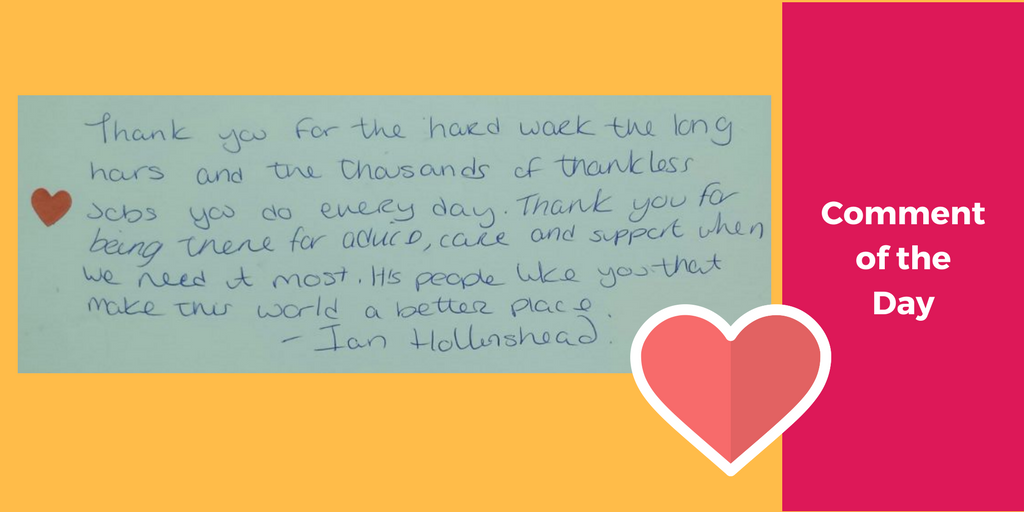 Thank you for the hard work the long
hours and the thousands of thankless
Jobs you do every day. Thank you for
being there for advice, care and support when
we need it most. It's people like you that
make this world a better place.
- Ian Hollinshead.
Comment
of the
Day